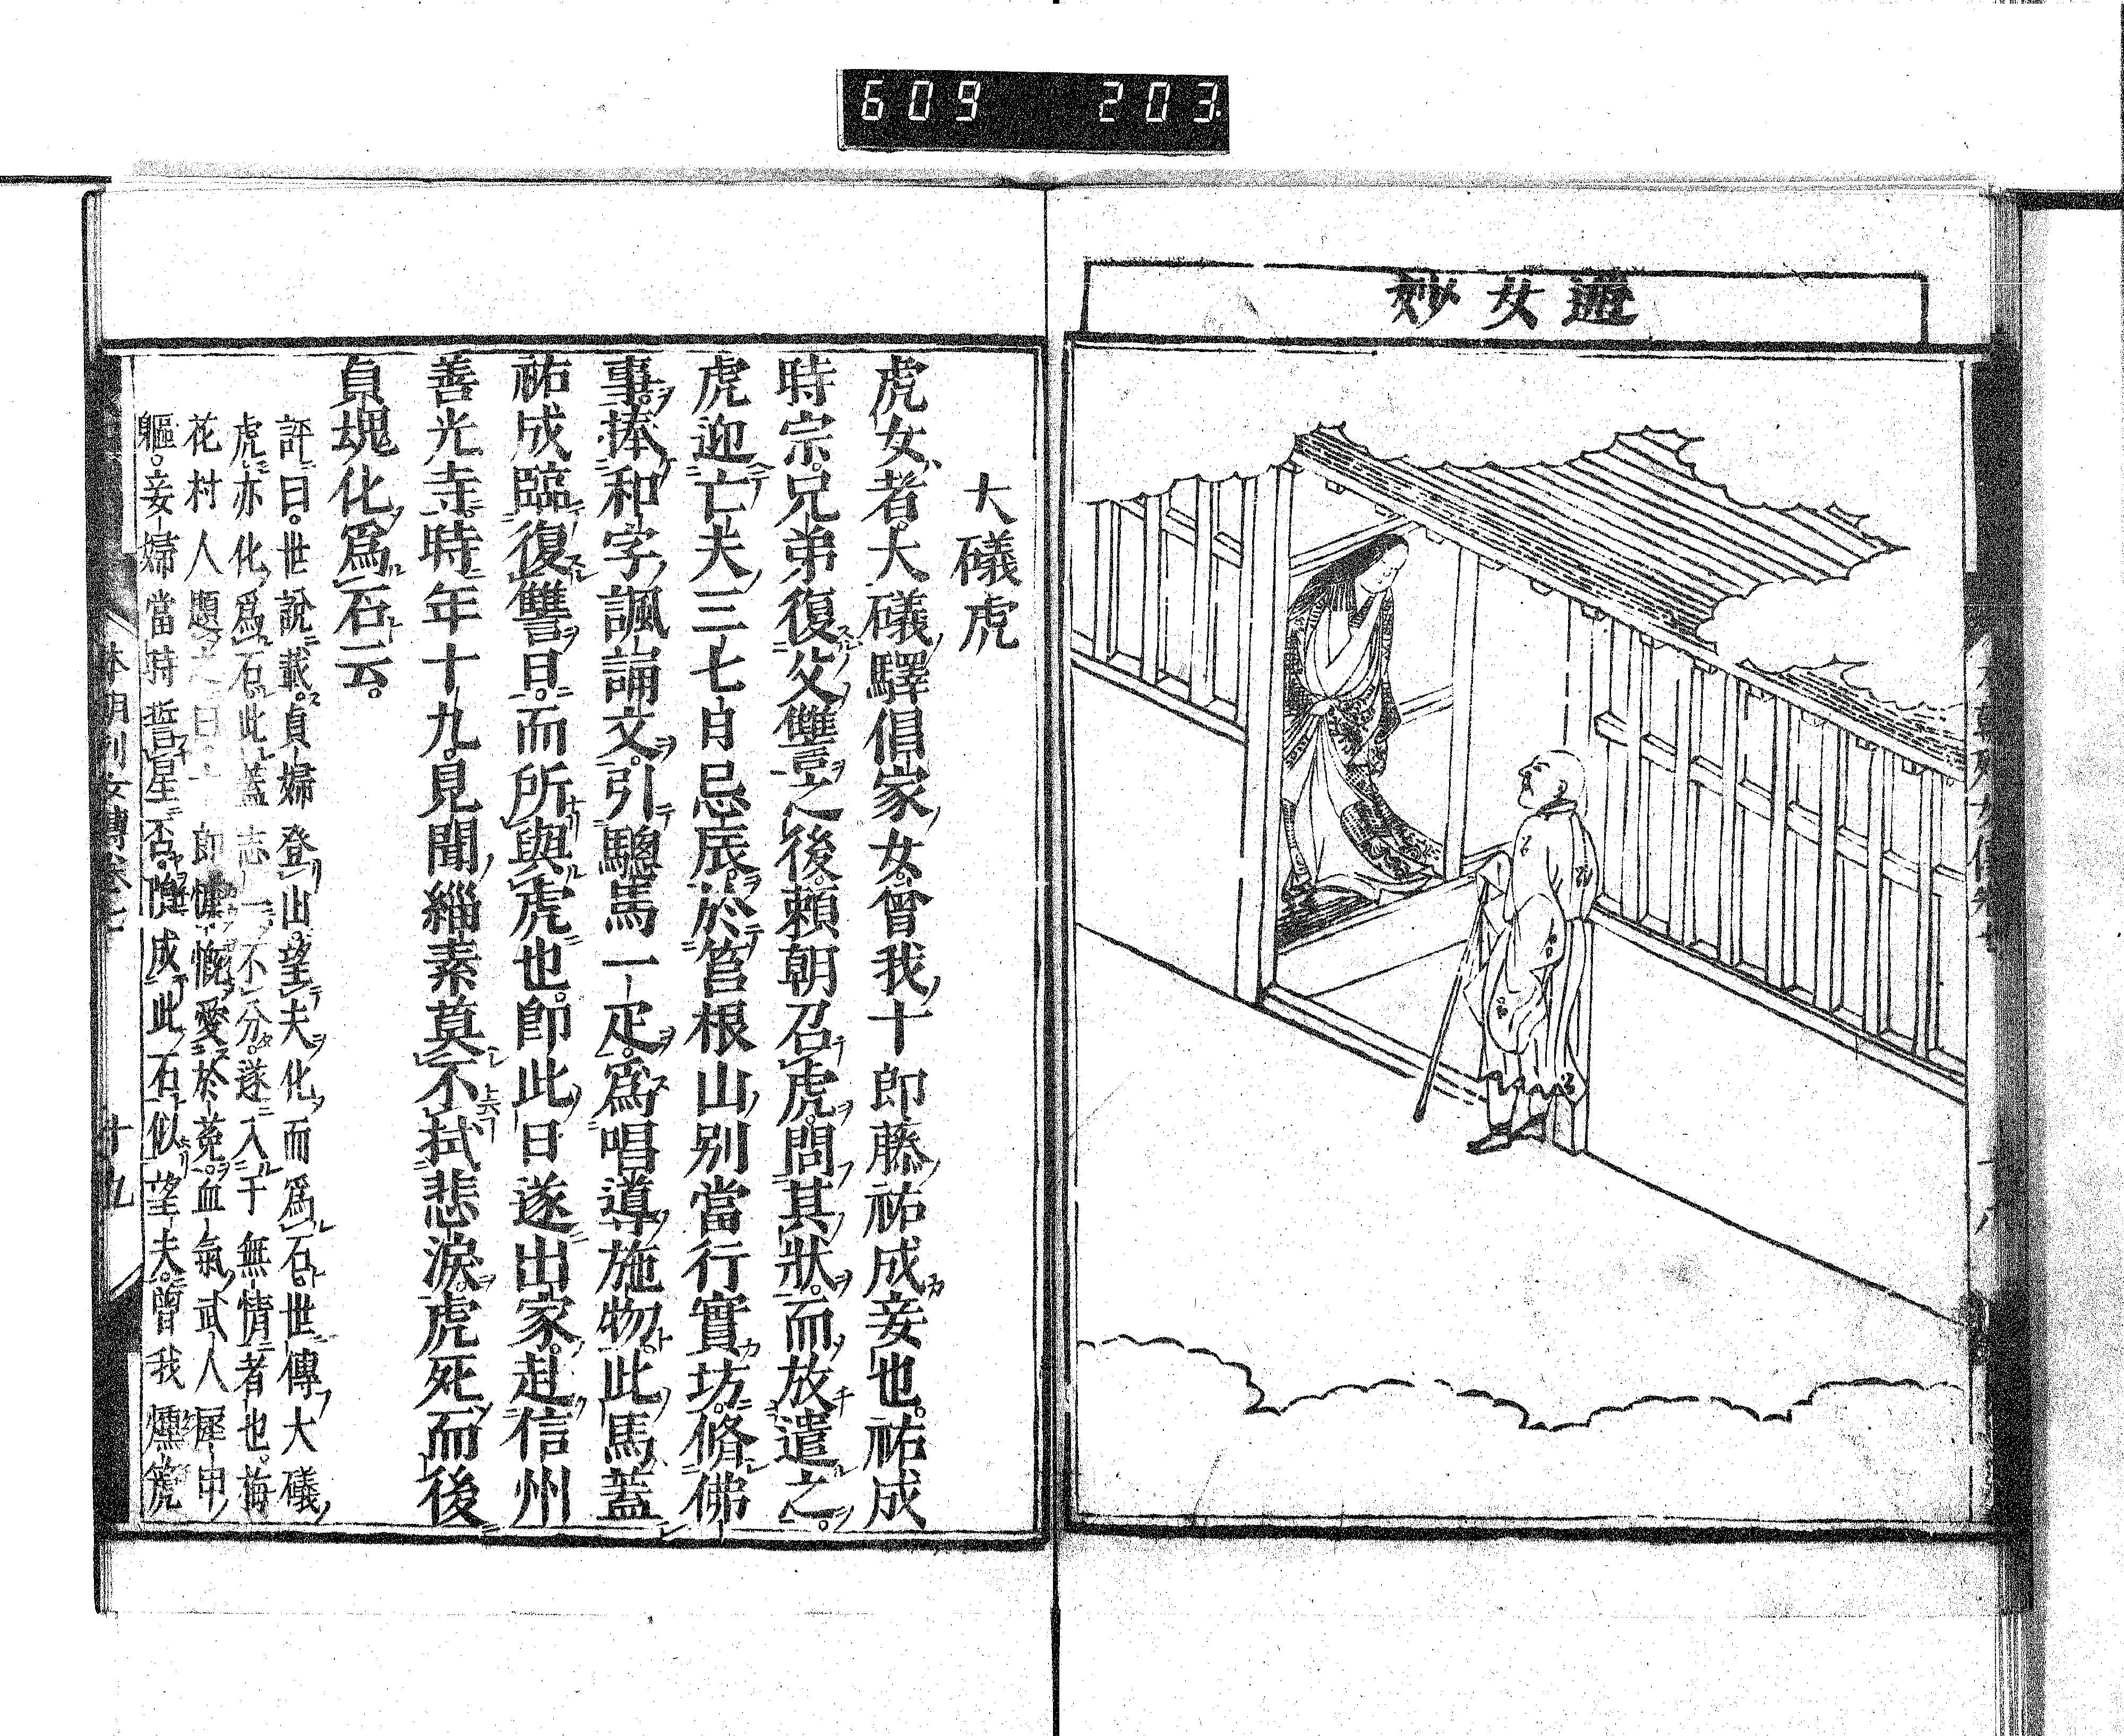 609 203
遊女妙
大礒虎
虎女者。大礒驛倡家女。曾我十郎藤祐成妾也。祐成
時宗。兄弟復父讐之後。頼朝召虎。問其狀。而放遣之。
虎迎亡夫三七日忌辰。於筥根山別當行實坊。脩佛
事。捧和字諷誦文。引驄馬一疋。爲唱導施物。此馬蓋
祐成臨復讐日。而所與虎也。卽此日遂出家。赴信州
善光寺。時年十九。見聞緇素莫不拭悲淚。虎死而後
貞塊化爲石云。
評曰。世說載。貞婦登山。望夫化而爲石。世傳大礒
虎亦化爲石。此蓋志一不分。遂入于無情者也。梅
花村人題之曰 節慷慨愛於菟。血氣武人犀甲
軀。妾婦當時誓星否。隕成此石似望夫。曾我
本朝列女傳卷七
十九